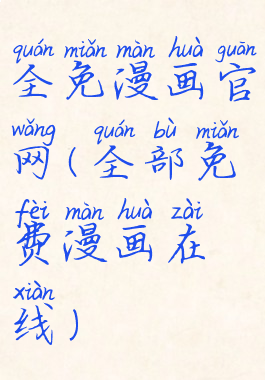 quán miǎn màn huà guān
全免漫画官
wǎng quán bù miǎn
网(全部免
fèi màn huà zài
费漫画在
xiàn
线)